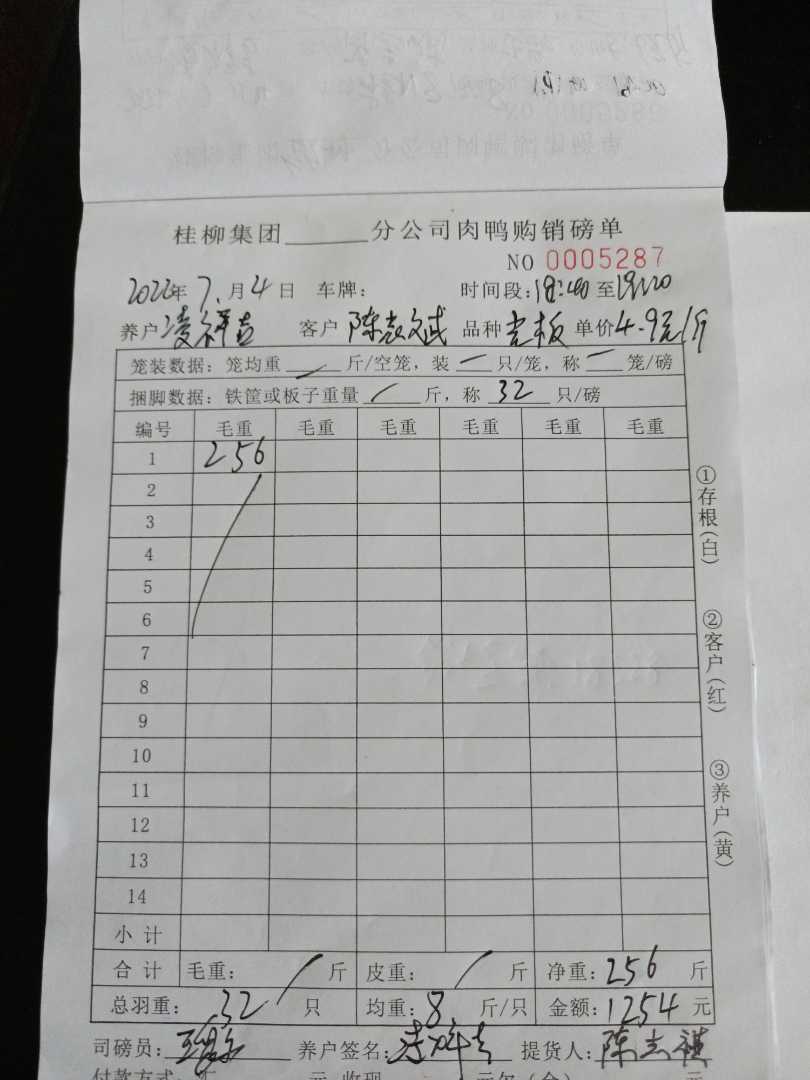 桂柳集团______分公司肉鸭购销磅单
NO 0005287
2022年7月4日 车牌: 时间段:18:40至19:20
养户 客户 陈 武 品种 老板 单价4.9元/斤
笼装数据: 笼均重 / 斤/空笼, 装 一 只/笼, 称 一 笼/磅
捆脚数据: 铁筐或板子重量 / 斤, 称 32 只/磅
编号 毛重 毛重 毛重 毛重 毛重 毛重
1 256
2
3
4
5
6
7
8
9
10
11
12
13
14
小计
合计 毛重: / 斤 皮重: / 斤 净重: 256 斤
总羽重: 32 只 均重: 8 斤/只 金额: 1254 元
司磅员: 养户签名: 提货人: 陈志祺
付款方式: 元 收现 元欠(余) 元
①存根(白)
②客户(红)
③养户(黄)